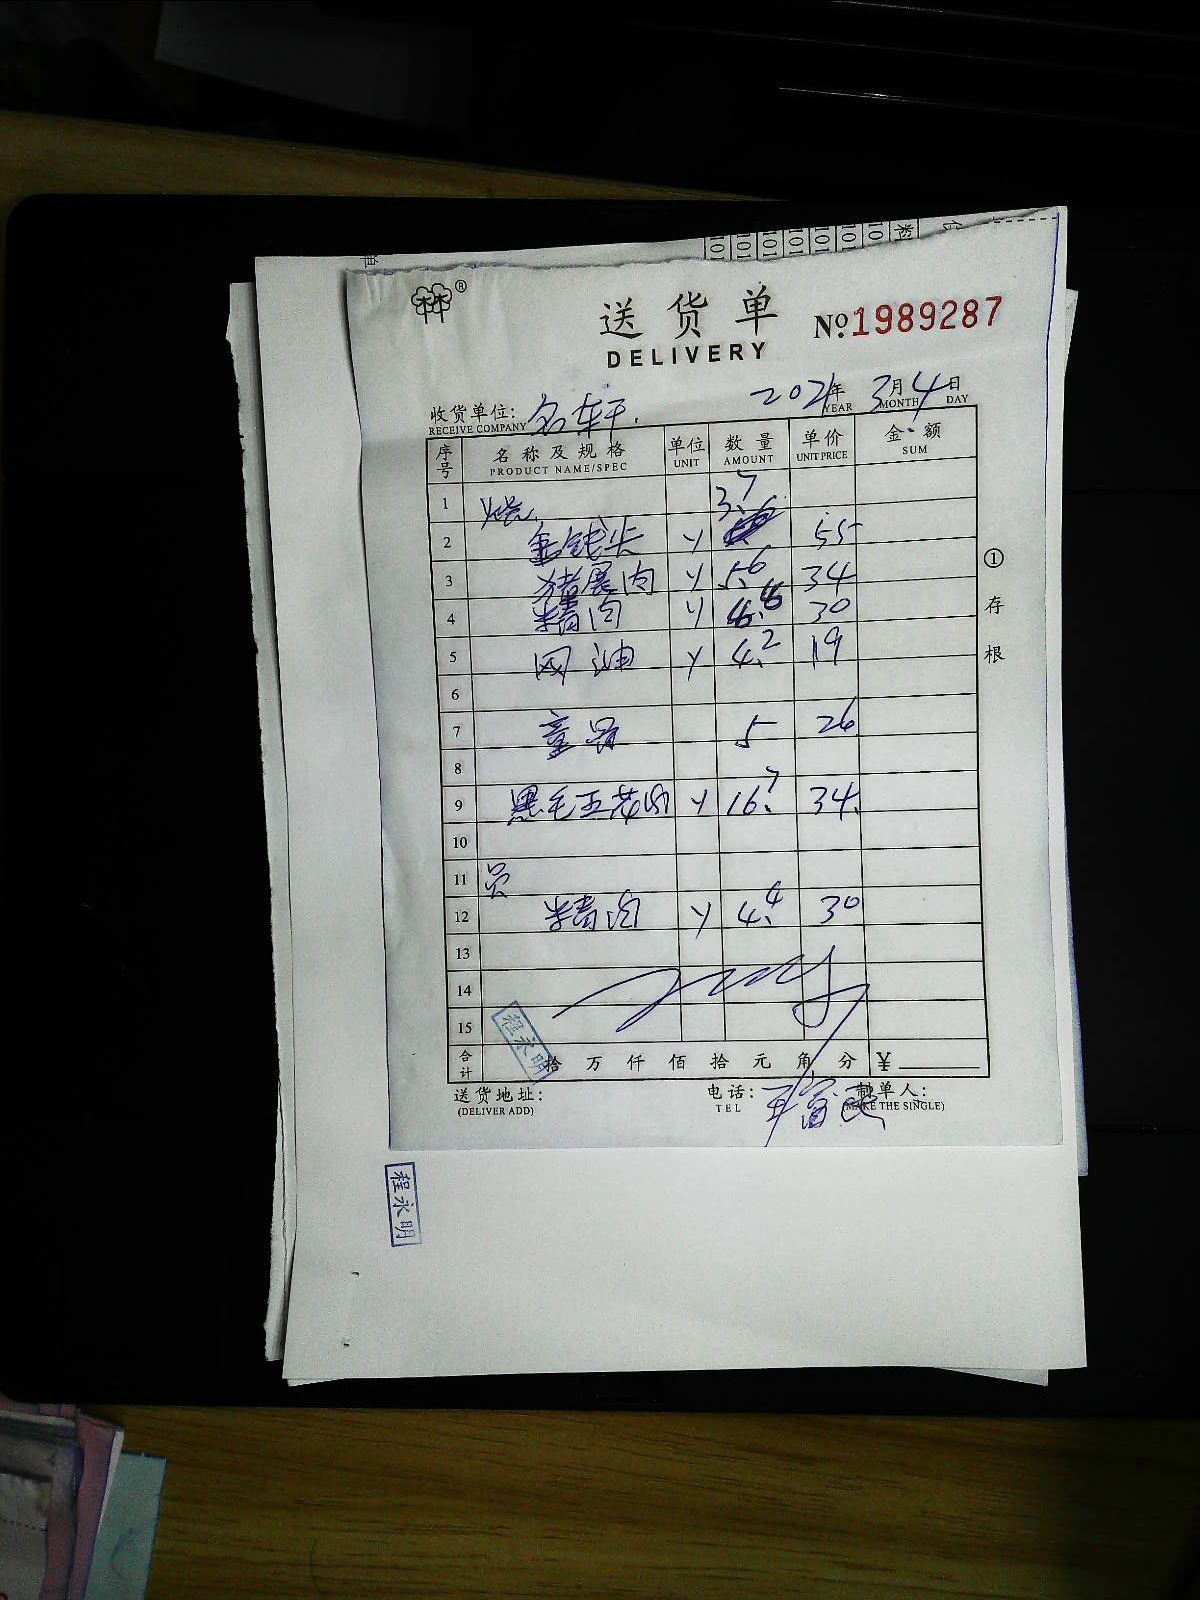 送货单 №1989287
DELIVERY
2021年 3月4日
YEAR MONTH DAY
收货单位: 名轩.
RECEIVE COMPANY
序号 名称及规格 单位 数量 单价 金额
PRODUCT NAME/SPEC UNIT AMOUNT UNIT PRICE SUM
1 烧 3.7
2 金钱头 y 55
3 猪展肉 y 5.6 34
4 精肉 y 30
5 网油 y 4.2 19
6
7 童骨 5 26
8
9 黑毛五花肉 y 16.7 34.
10
11 员
12 精肉 y 4.4 30
13
14
15
合计 拾 万 仟 佰 拾 元 角 分 ¥
送货地址: 电话: 制单人:
(DELIVER ADD) TEL (MAKE THE SINGLE)
①存根
程永明
程永明